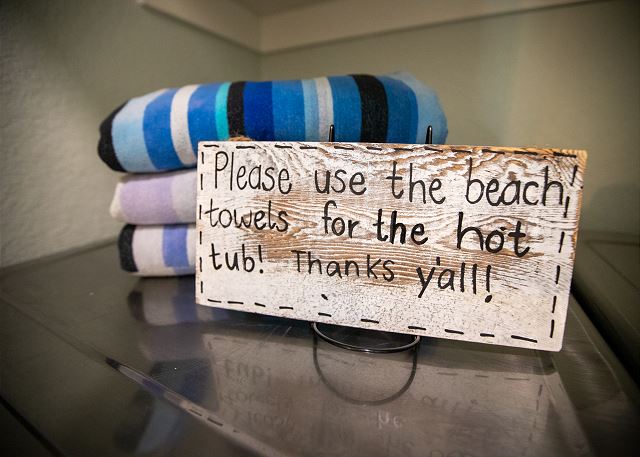 Please use the beach
towels for the hot
tub! Thanks y'all!